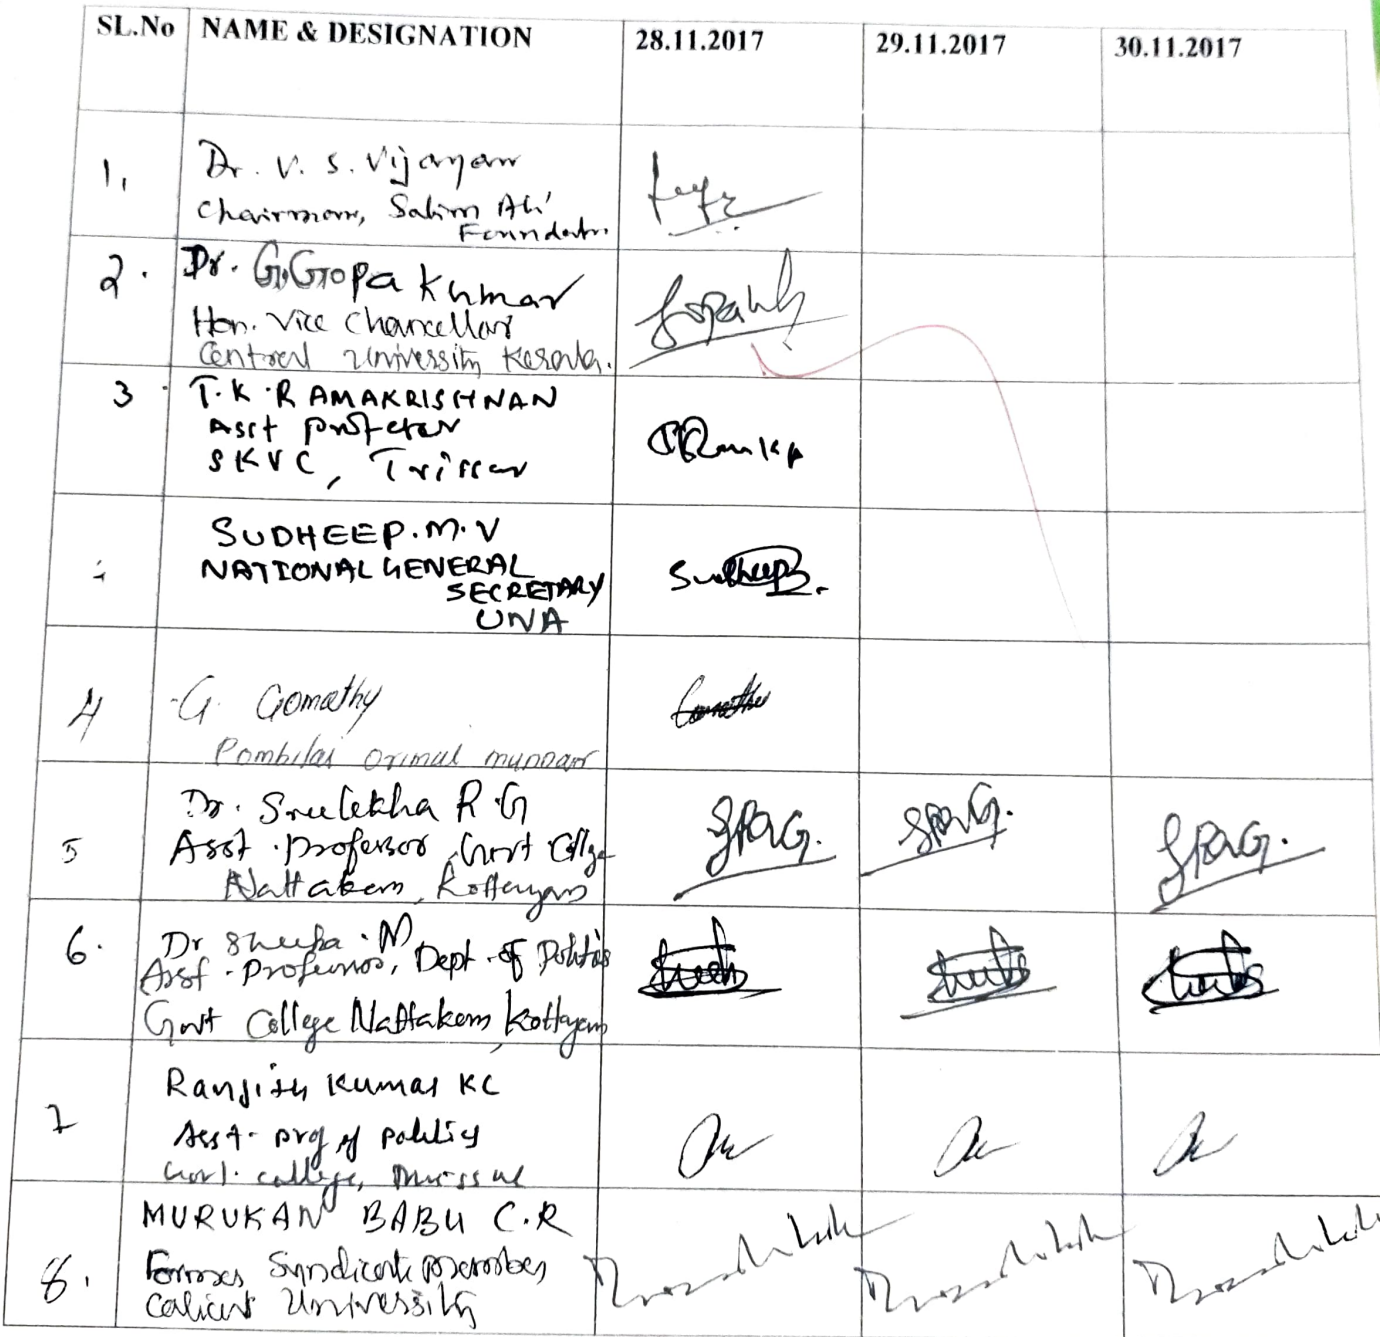 SL.No NAME & DESIGNATION 28.11.2017 29.11.2017 30.11.2017
1, Dr. V. S. Vijayan
Chairman, Salim Ali
Foundatn.
2. Dr. G.Gopa Kumar
Hon. Vice Chancellor
Central University Kerala.
3 T.K.RAMAKRISHNAN
Asst profetor
SKVC, Trissur
SUDHEEP.M.V
NATIONAL GENERAL
SECRETARY
UNA
Sudheep
4 G. Gomathy
Pombilai orimai munnar
5 Dr. Sreelekha R.G
Asst. Professor, Govt College
Nattakom, Kottayam
SRG. SRG. SRG.
6. Dr Sheeba.M
Asst. Professor, Dept. of Politics
Govt College Nattakom, Kottayam
7 Ranjith Kumar KC
Asst. prof of politics
Govt. college,
8. MURUKAN BABU C.R
Former Syndicate member
Calicut University